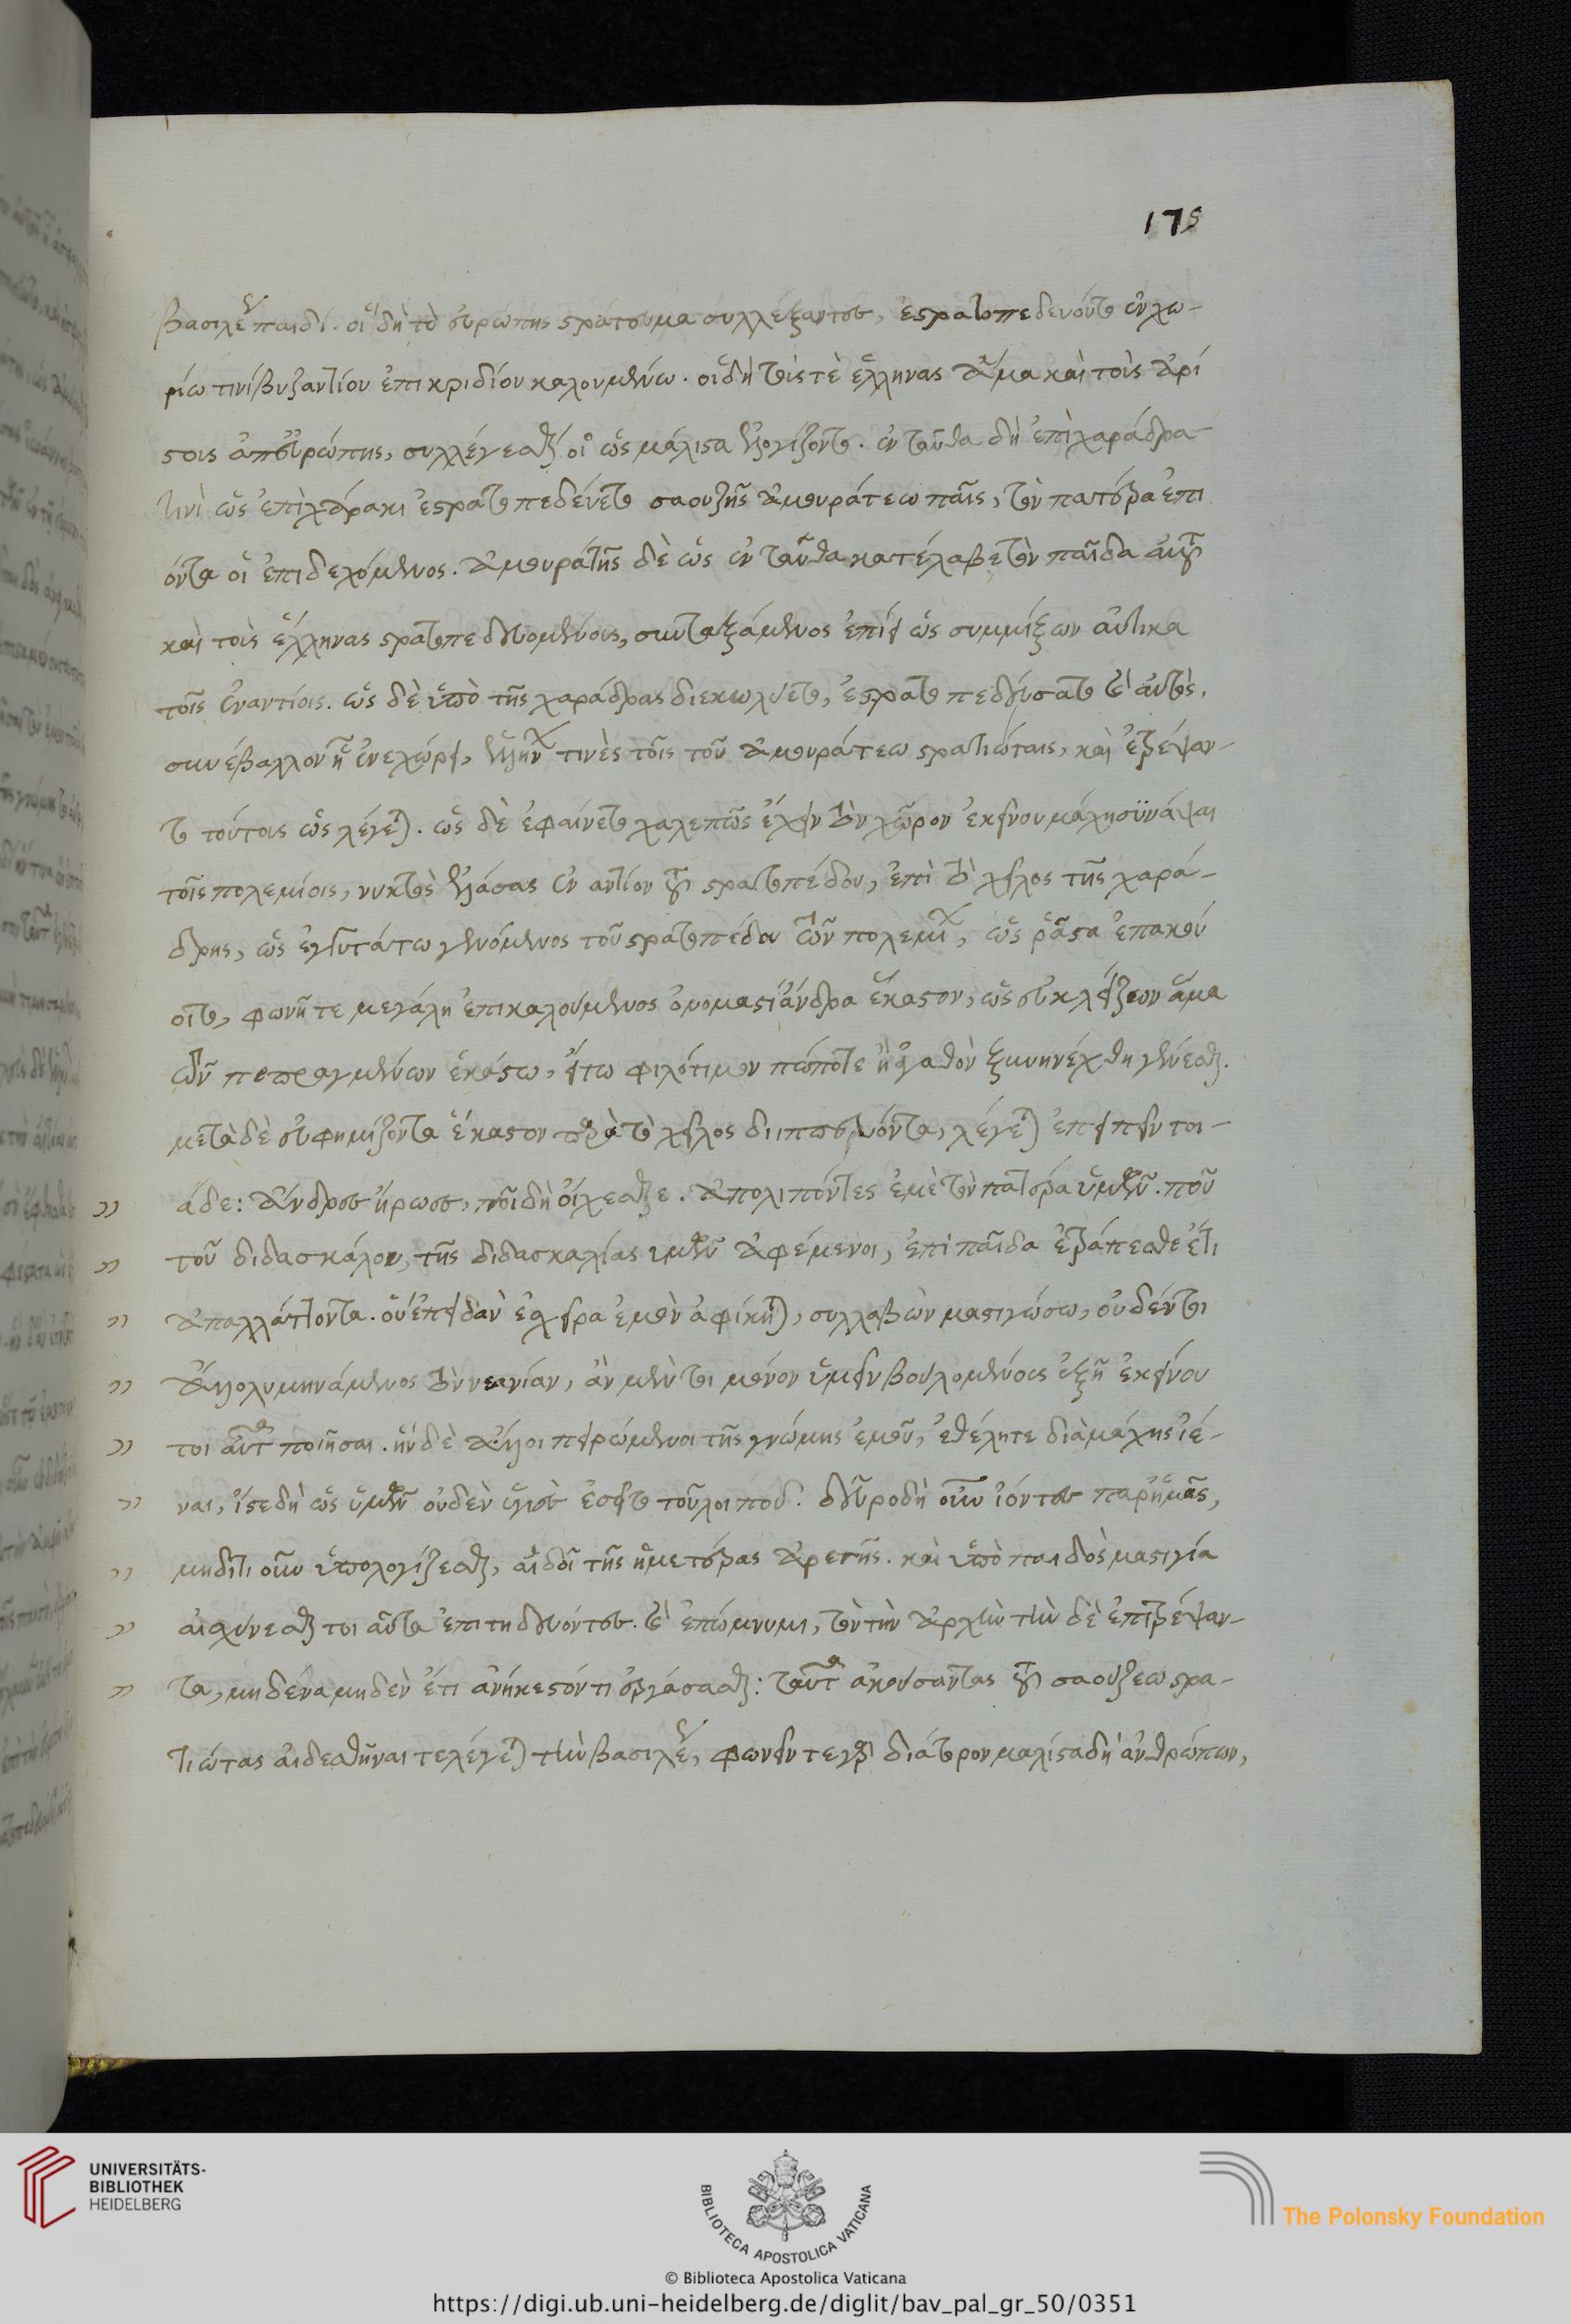 175
βασιλέως παιδί. οἱ δὴ τὸ εὐρώπης στράτευμα συλλέξαντες, ἐστρατοπεδεύοντο ἐν χω-
ρίω τινὶ βυζαντίου ἐπικριδίου καλουμένω. οἱ δὴ τοῖς τὲ ἕλληνας ἅμα καὶ τοῖς ἀρί
στοις ἀπ' εὐρώπης, συλλέγεσθαί οἱ ὡς μάλιστα ἐλογίζοντο. ἐνταῦθα δὴ ἐπὶ χαράδρα
τινὶ ὡς ἐπὶ χάρακι ἐστρατοπεδεύετο σαουζῆς ἀμουράτεω παῖς, τὸν πατέρα ἐπι
όντα οἱ ἐπιδεχόμενος. ἀμουράτης δὲ ὡς ἐνταῦθα κατέλαβε τὸν παῖδα αὐτοῦ
καὶ τοὶς ἕλληνας στρατοπεδευομένοις, συνταξάμενος ἐπήει ὡς συμμίξων αὐτίκα
τοῖς ἐναντίοις. ὡς δὲ ὑπὸ τῆς χαράδρας διεκωλύετο, ἐστρατοπεδεύσατο καὶ αὐτὸς.
συνέβαλλον ἧ ἐνεχώρει, ἑλλήνων τινὲς τοῖς τοῦ ἀμουράτεω στρατιώταις, καὶ ἐτρέψαν-
το τούτοις ὡς λέγεται. ὡς δὲ ἐφαίνετο χαλεπῶς ἔχειν τὸν χῶρον ἐκείνου μάχη συνάψαι
τοῖς πολεμίοις, νυκτὸς ἐλάσας ἐναντίον τοῦ στρατοπέδου, ἐπὶ τὸ χεῖλος τῆς χαρά-
δρης, ὡς ἐγγυτάτω γενόμενος τοῦ στρατοπέδου τῶν πολεμίων, ὡς ῥᾶστα ἐπακού
οιτο, φωνῆ τε μεγάλη ἐπικαλούμενος ὀνομαστὶ ἄνδρα ἕκαστον, ὡς εὐκλείζων ἅμα
τῶν πεπραγμένων ἑκάστω, εἴτω φιλότιμον πώποτε ἢ ἀγαθὸν ξυνηνέχθη γενέσθαι.
μετὰ δὲ εὐφημίζοντα ἕκαστον παρὰ τὸ χεῖλος διιππεύοντα, λέγεται ἐπειπεῖν τοι-
άδε: ἄνδρες ἥρωες, ποῖ δὴ οἴχεσθε. ἀπολιπόντες ἐμὲ τὸν πατέρα ὑμῶν. ποῦ
τοῦ διδασκάλου, τῆς διδασκαλίας ὑμῶν ἀφέμενοι, ἐπὶ παῖδα ἐτράπεσθε ἔτι
ἀπαλλάττοντα. ὃν ἐπειδὰν ἐς χεῖρα ἐμὴν ἀφίκηται, συλλαβὼν μαστιγώσω, οὐδέν τι
ἄλλο λυμηνάμενος τὸν νεανίαν, ἂν μέν τι μόνον ὑμεῖν βουλομένοις ἐξῆ ἐκείνου
τοι αὐτα ποιῆσαι. ἢν δὲ ἄλλοι πειρώμενοι τῆς γνώμης ἐμοῦ, ἐθέλητε διὰ μάχης ἰέ-
ναι, ἴστε δὴ ὡς ὑμῶν οὐδὲν ὑγιὲς ἐσεῖτο τοῦ λοιποῦ. δεῦρο δὴ οὖν ἰόντες παρ' ἡμᾶς,
μηδέτι οὖν ὑπολογίζεσθαι, αἰδοῖ τῆς ἡμετέρας ἀρετῆς. καὶ ὑπὸ παιδὸς μαστιγία
αἰσχύνεσθαι τοι αῦτα ἐπιτηδεύοντες. καὶ ἐπόμνυμι, τὸν τὴν ἀρχὴν τήν δὲ ἐπιτρέψαν-
τα, μηδένα μηδὲν ἔτι ἀνήκεστόν τι ἐργάσασθαι: ταῦτα ἀκούσαντας τοῦ σαούζεω στρα-
τιώτας αἰδεσθῆναι τε λέγεται τὴν βασιλέως, φωνήν τε γὰρ διάτορον μαλίστα δὴ ἀνθρώπων,
UNIVERSITÄTS-
BIBLIOTHEK
HEIDELBERG
BIBLIOTECA APOSTOLICA VATICANA
The Polonsky Foundation
© Biblioteca Apostolica Vaticana
https://digi.ub.uni-heidelberg.de/diglit/bav_pal_gr_50/0351